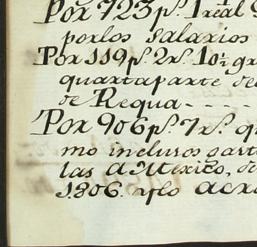 Por 723 p.s 1 real
por los salarios
Por 119 p.s 2 r.s 10½ gr
quarta parte de
de Requa - - - -
Por 906 p.s 7 r.s q
mo inclusos gasto
las a Mexico, d
1806. y lo acre